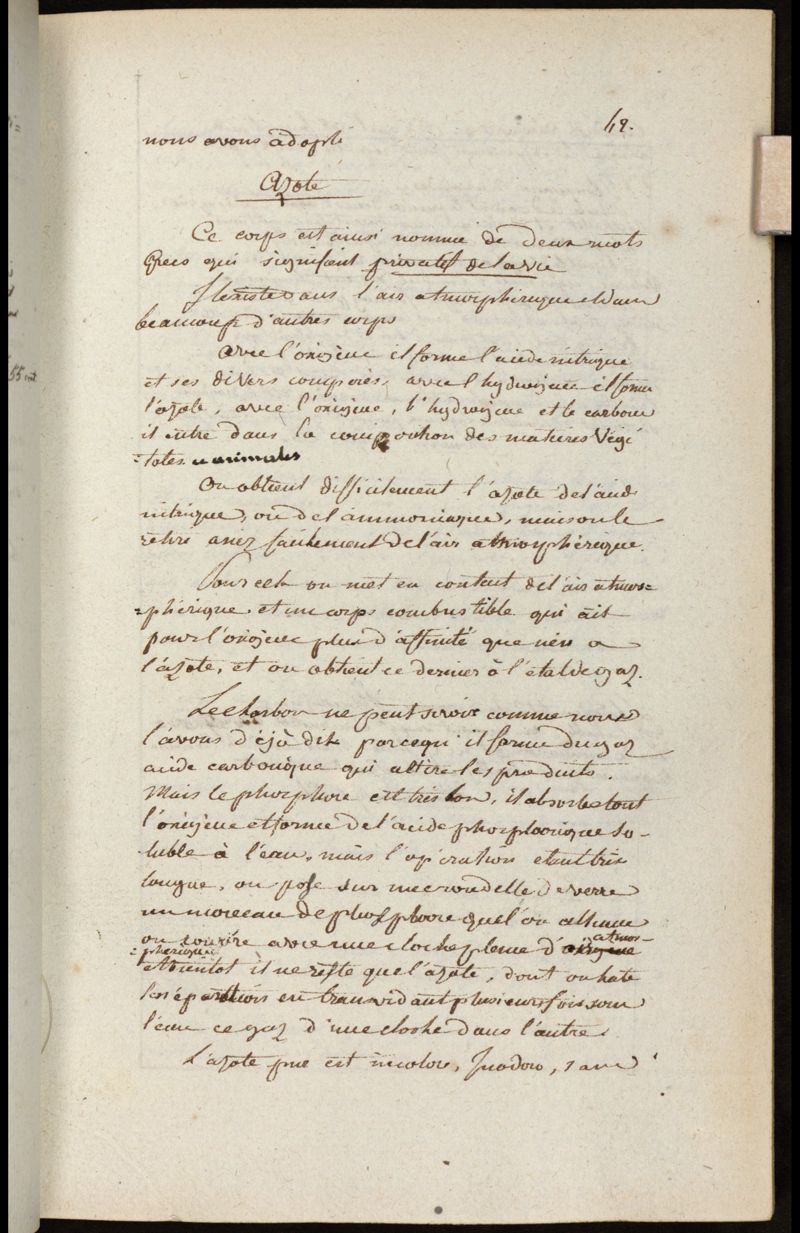 49.
nous avons adopté
Azote
Ce corps est ainsi nommé de deux mots
Grecs qui signifient privatif de la vie
Il existe dans l'air atmospherique et dans
beaucoup d'autres corps
avec l'oxigene il forme l'acide nitrique
et ses divers composés, avec l'hydrogene il forme
l'azote, avec l'oxigene, l'hydrogene et le carbone
il entre dans la composition des matieres végé
=tales et animales
On obtient difficilement l'azote de l'acide
nitrique, ou de l'ammoniaque, mais on le
retire assez facilement de l'air atmosphérique.
Pour cela on met en contact de l'air atmos=
=phérique et un corps combustible qui ait
pour l'oxigene plus d'affinité que n'en a
l'azote, et on obtient ce dernier à l'état de gaz.
Le charbon ne peut servir comme nous
l'avons déjà dit parcequ'il forme du gaz
acide carbonique qui altère les produits.
Mais le phosphore est très bon, il absorbe tout
l'oxigene et forme de l'acide phosphorique so-
luble à l'eau, mais l'opération etant très
longue, on pose sur une rondelle de verre
un morceau de phosphore que l'on allume
on couvre avec une cloche pleine d'air atmos-
=phérique
et bientot il ne reste que l'azote, dont on hate
la séparation en transvidant plusieurs fois sous
l'eau ce gaz d'une cloche dans l'autre.
L'azote pur est incolore, Inodore, sans
55